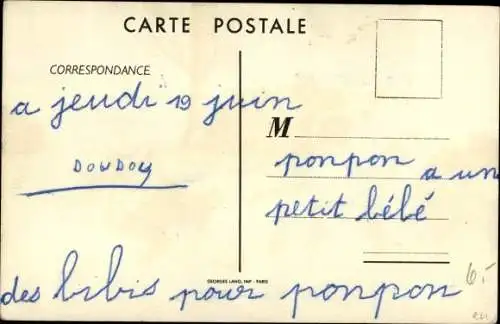 CARTE POSTALE
CORRESPONDANCE
a jeudi 19 juin
DOUDOU
M
ponpon a un
petit bébé
des bibis pour ponpon
GEORGES LANG, IMP - PARIS
6.-